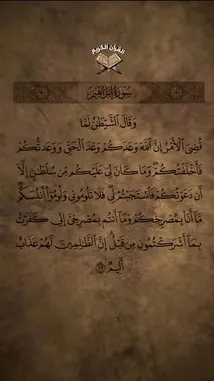 القرآن الكريم
سُورَةُ إِبْرَاهِيمَ
وَقَالَ ٱلشَّيْطَٰنُ لَمَّا
قُضِىَ ٱلْأَمْرُ إِنَّ ٱللَّهَ وَعَدَكُمْ وَعْدَ ٱلْحَقِّ وَوَعَدتُّكُمْ
فَأَخْلَفْتُكُمْ وَمَا كَانَ لِىَ عَلَيْكُم مِّن سُلْطَٰنٍ إِلَّآ
أَن دَعَوْتُكُمْ فَٱسْتَجَبْتُمْ لِى فَلَا تَلُومُونِى وَلُومُوٓا۟ أَنفُسَكُم
مَّآ أَنَا۠ بِمُصْرِخِكُمْ وَمَآ أَنتُم بِمُصْرِخِىَّ إِنِّى كَفَرْتُ
بِمَآ أَشْرَكْتُمُونِ مِن قَبْلُ إِنَّ ٱلظَّٰلِمِينَ لَهُمْ عَذَابٌ
أَلِيمٌ ٢٢